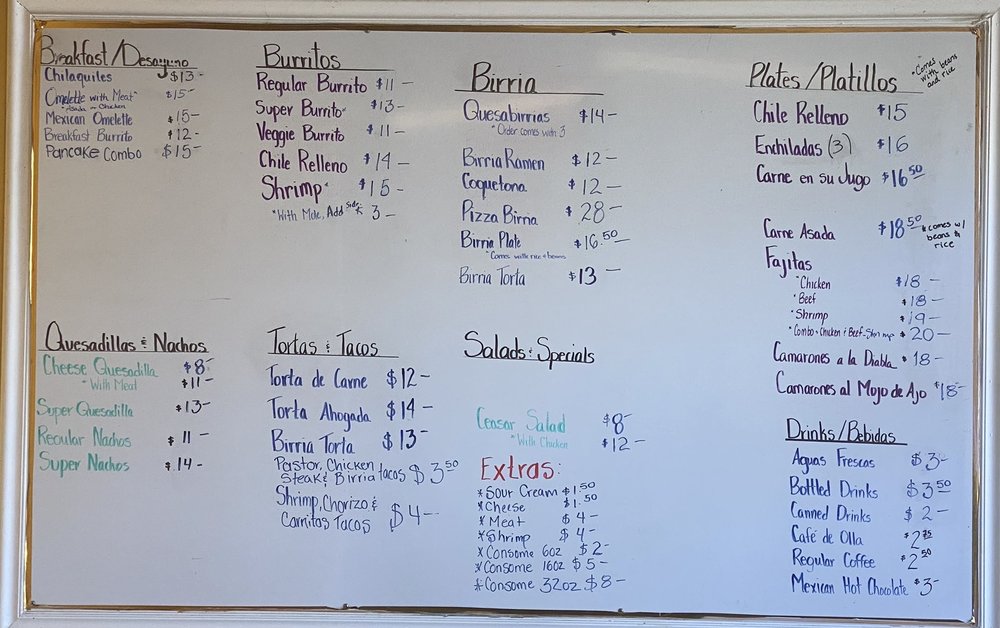 Breakfast/Desayuno
Chilaquiles $13-
Omelette with Meat* $15-
*Asada or Chicken
Mexican Omelette $15-
Breakfast Burrito $12-
Pancake Combo $15-
Burritos
Regular Burrito $11-
Super Burrito $13-
Veggie Burrito $11-
Chile Relleno $14-
Shrimp* $15-
*With Mole, Add Side: 3-
Birria
Quesabirrias $14-
*Order comes with 3
Birria Ramen $12-
Coquetona $12-
Pizza Birria $28-
Birria Plate $16.50
*Comes with rice & beans
Birria Torta $13-
Plates/Platillos
*Comes with beans and rice
Chile Relleno $15
Enchiladas (3) $16
Carne en su Jugo $16.50
Carne Asada $18.50 *comes w/ beans & rice
Fajitas
*Chicken $18-
*Beef $18-
*Shrimp $19-
*Combo-Chicken & Beef-Shrimp $20-
Camarones a la Diabla $18-
Camarones al Mojo de Ajo $18-
Quesadillas & Nachos
Cheese Quesadilla $8-
*With Meat $11-
Super Quesadilla $13-
Regular Nachos $11-
Super Nachos $14-
Tortas & Tacos
Torta de Carne $12-
Torta Ahogada $14-
Birria Torta $13-
Pastor, Chicken
Steak & Birria tacos $3.50
Shrimp, Chorizo &
Carnitas Tacos $4-
Salads & Specials
Ceasar Salad $8-
*With Chicken $12-
Extras:
*Sour Cream $1.50
*Cheese $1.50
*Meat $4-
*Shrimp $4-
*Consome 6oz $2-
*Consome 16oz $5-
*Consome 32oz $8-
Drinks/Bebidas
Aguas Frescas $3-
Bottled Drinks $3.50
Canned Drinks $2-
Café de Olla $2.75
Regular Coffee $2.50
Mexican Hot Chocolate $3-